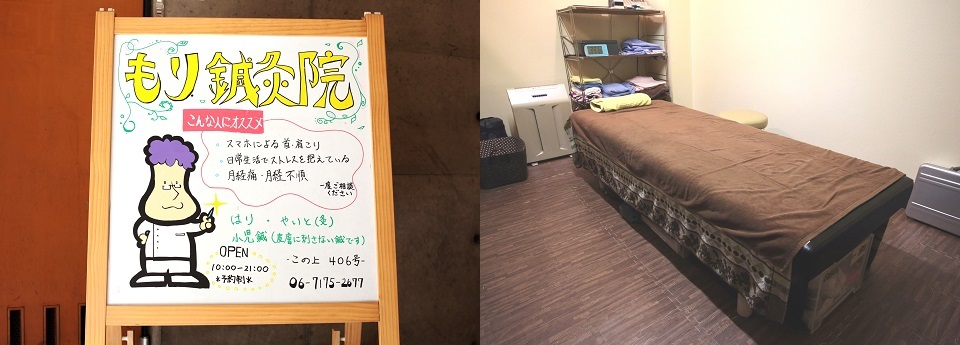 もり鍼灸院
こんな人にオススメ
・スマホによる首・肩こり
・日常生活でストレスを抱えている
・月経痛・月経不順
一度ご相談
ください
はり・やいと(灸)
小児鍼(皮膚に刺さない鍼です)
OPEN
10:00~21:00
*予約制*
-この上 406号-
06-7175-2677